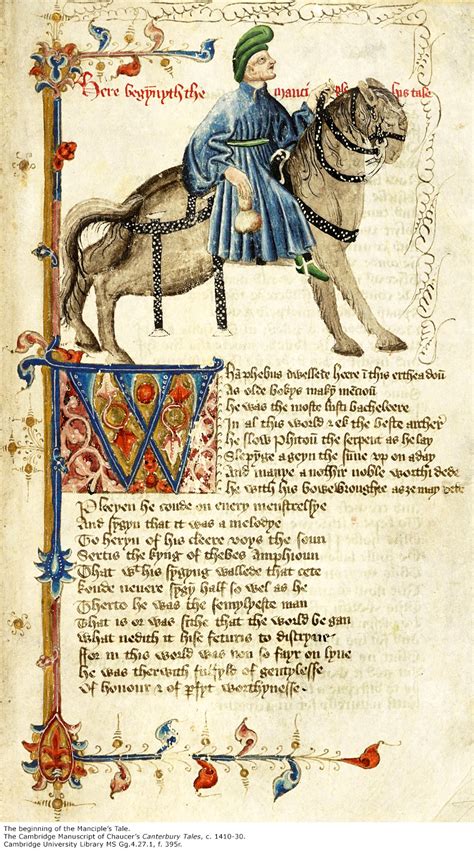 Here begynyth the Manciple his tale
Whan Phebus dwellete heere i this erthe a doū
As olde bokys maky mēcioū
He was the moste lusti bacheleere
In al this world & ek the beste archer
He slow Phitoū the serpent as he lay
Slepynge ageyn the sunne up on a day
And manye a nothir noble worthi dede
He with his bowe wroughte as ȝe may rede
Pleyen he coude on euery menstralsye
And syngyn that it was a melodye
To heryn of his cleere voys the soun
Sertis the kyng of thebes Amphioun
That wt his syngyng wallede that cete
Koude neuere syngȝ half so wel as he
Therto he was the semelyeste man
That is or was sithe that the world be gan
What nedith it hise feturis to discryue
ffor in this world was non so fayr on lyue
He was therwith fulfyld of gentylesse
Of honour & of pfyt worthynesse
The beginning of the Manciple's Tale.
The Cambridge Manuscript of Chaucer's Canterbury Tales, c. 1410-30.
Cambridge University Library MS Gg.4.27.1, f. 395r.